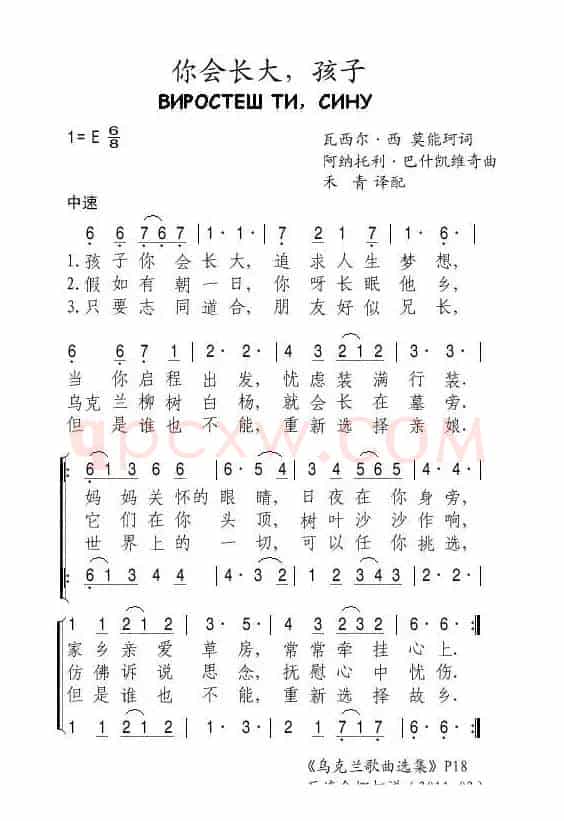 你会长大，孩子
ВИРОСТЕШ ТИ, СИНУ
1= E 6/8
瓦西尔·西 莫能珂词
阿纳托利·巴什凯维奇曲
禾 青 译配
中速
6 6 7 6 7 | 1· 1· | 7 2 1 7 | 6· 6· |
1. 孩子你会长大，追求人生梦想，
2. 假如有朝一日，你呀长眠他乡，
3. 只要志同道合，朋友好似兄长，
6 6 7 1 | 2· 2· | 4 3 2 1 2 | 3· 3· |
当你启程出发，忧虑装满行装．
乌克兰柳树白杨，就会长在墓旁．
但是谁也不能，重新选择亲娘．
qpcxw.com
6 1 3 6 6 | 6· 5 4 | 3 4 5 6 5 | 4· 4· |
妈妈关怀的眼睛，日夜在你身旁，
它们在你头顶，树叶沙沙作响，
世界上的一切，可以任你挑选，
6 1 3 4 4 | 4· 5 4 | 3 2 1 2 1 | 2· 2· |
1 1 2 1 2 | 5· 5· | 4 3 2 3 2 | 6· 6· :|
家乡亲爱草房，常常牵挂心上．
仿佛诉说思念，抚慰心中忧伤．
但是谁也不能，重新选择故乡．
1 1 2 1 2 | 3· 3· | 2 1 7 1 7 | 6· 6· :|
《乌克兰歌曲选集》P18